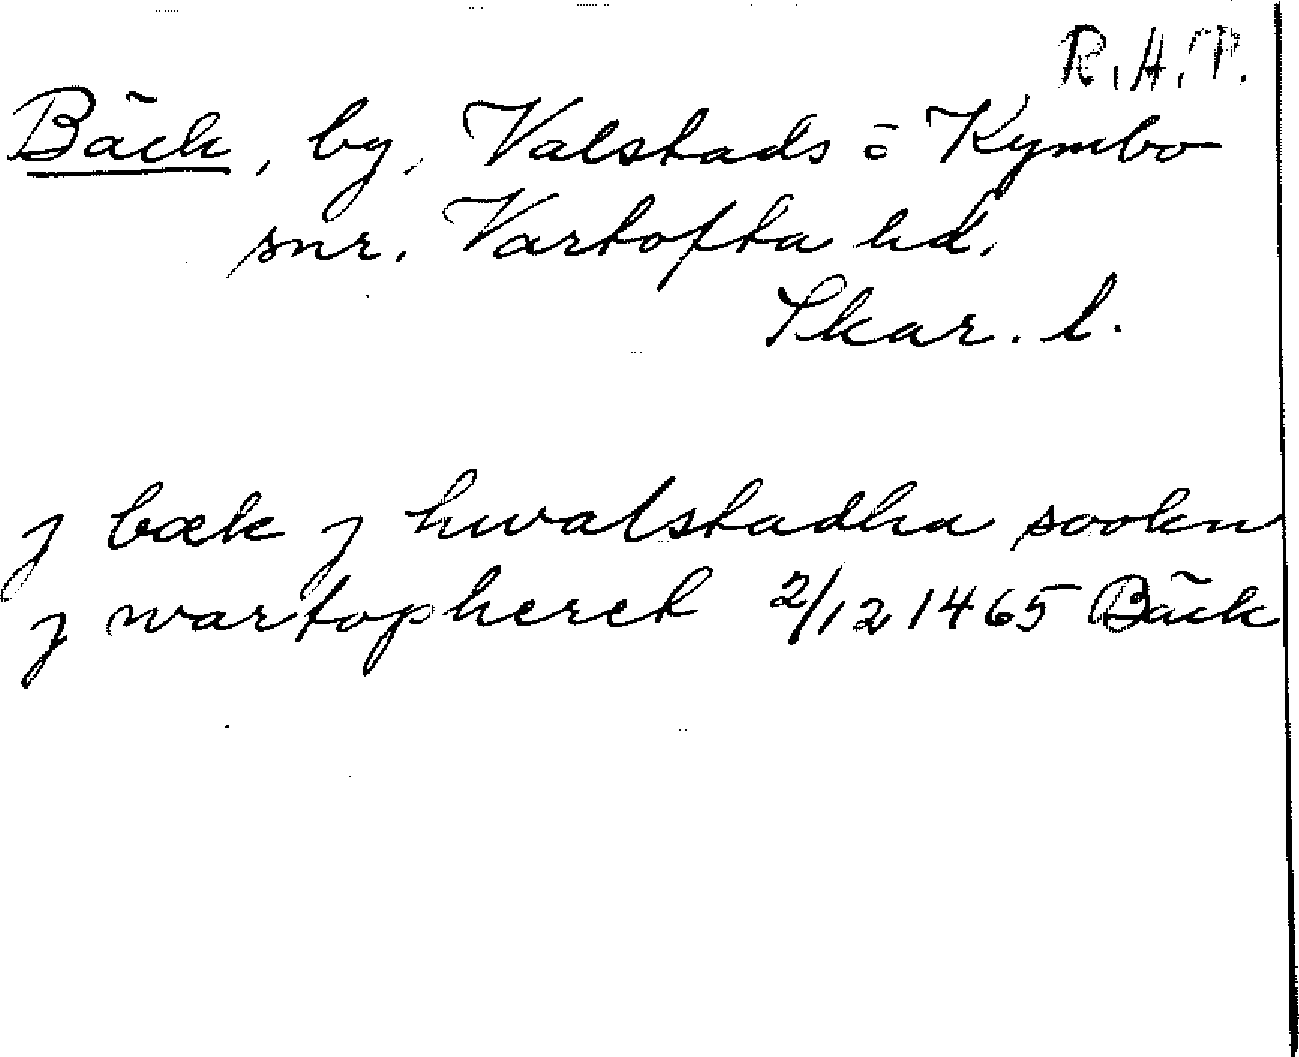 R.A.P.
Bäck, by, Valstads o Kymbo
snr. Vartofta hd.
Skar. l.
j bæk j hwalstadha sookn
j wartopheret 2/12 1465 Bäck